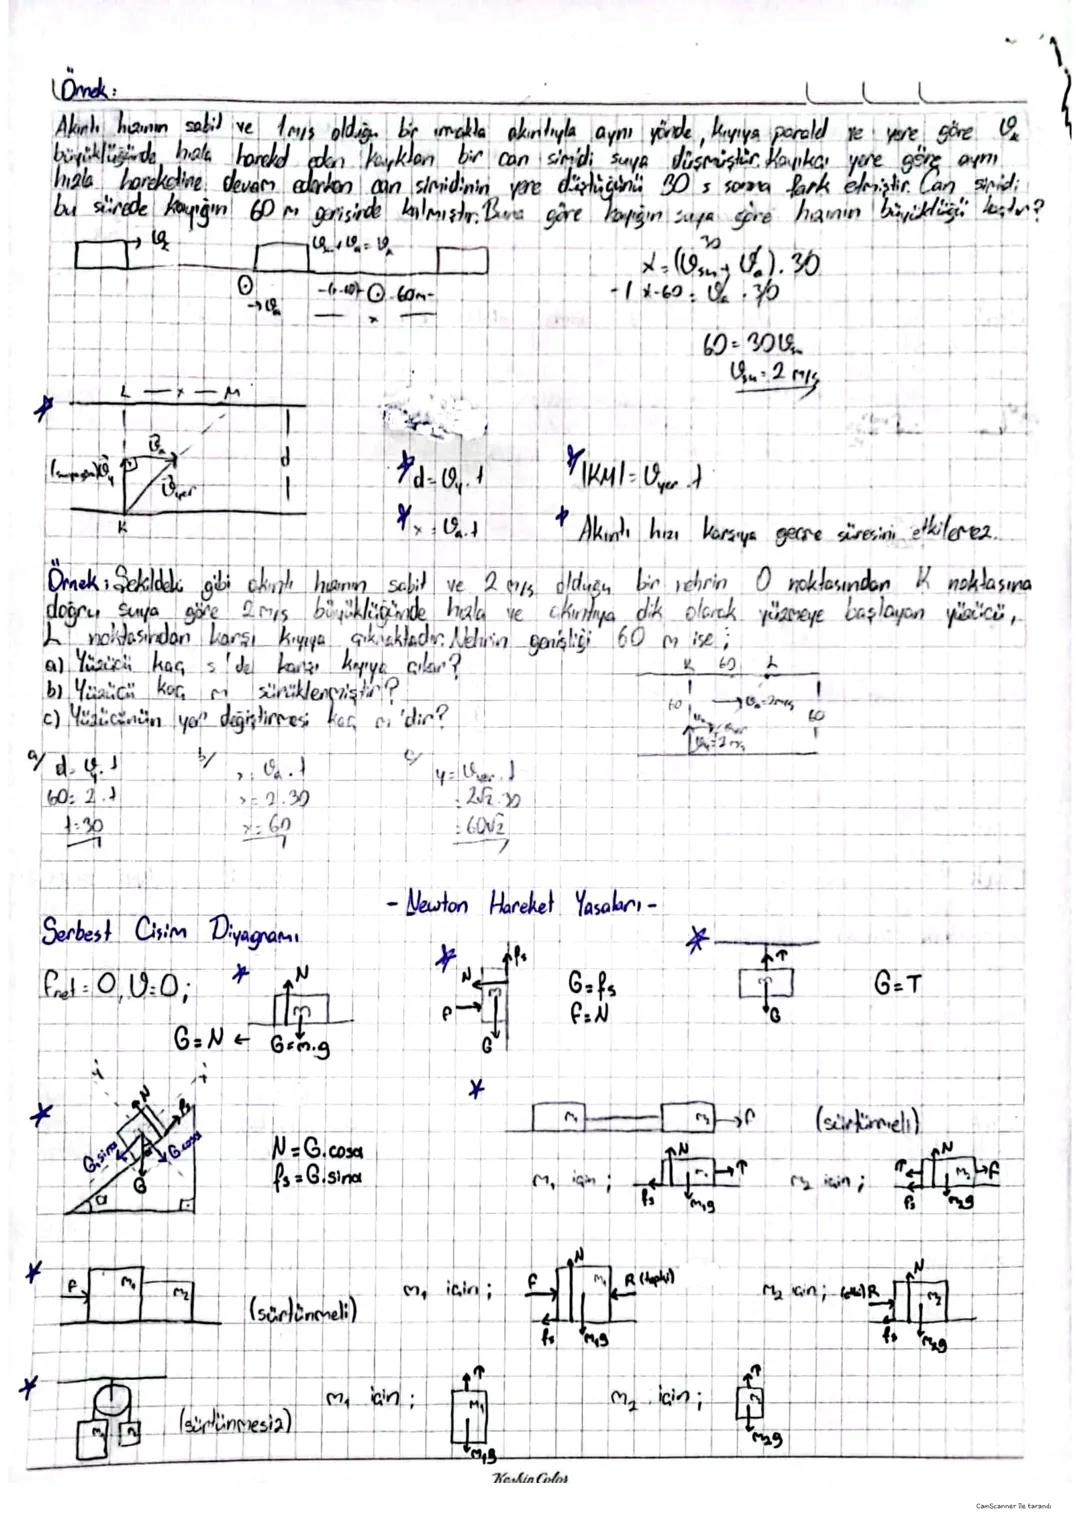 Örnek:
Akıntı hızının sabit ve 1 m/s olduğu bir ırmakta akıntıyla aynı yönde, kıyıya paralel ve yere göre ϑₖ
büyüklüğünde hızla hareket eden kayıktan bir can simidi suya düşmüştür. Kayıkçı yere göre aynı
hızla hareketine devam ederken can simidinin yere düştüğünü 30 s sonra fark etmiştir. Can simidi
bu sürede kayığın 60 m gerisinde kalmıştır. Buna göre kayığın suya göre hızının büyüklüğü kaçtır?
ϑₖ
60m
x
ϑₐ
x = (ϑsu + ϑₐ). 30
-1 x-60 = ϑₐ . 30
60 = 30ϑsu
ϑsu = 2 m/s
L — x — M
ϑₐ
d
ϑy
ϑyer
K
d = ϑy . t
|KM| = ϑyer . t
x = ϑₐ . t
Akıntı hızı karşıya geçme süresini etkilemez.
Örnek: Şekildeki gibi akıntı hızının sabit ve 2 m/s olduğu bir nehrin O noktasından K noktasına
doğru suya göre 2 m/s büyüklüğünde hızla ve akıntıya dik olarak yüzmeye başlayan yüzücü,
L noktasından karşı kıyıya çıkmaktadır. Nehrin genişliği 60 m ise;
a) Yüzücü kaç s'de karşı kıyıya çıkar?
b) Yüzücü kaç m sürüklenmiştir?
c) Yüzücünün yer değiştirmesi kaç m'dir?
K 60 L
60
ϑₐ=2m/s
60
ϑy=2 m/s
a/ d = ϑy . t
60 = 2.t
t = 30
b/ x = ϑₐ . t
x = 2.30
x = 60
c/ y = ϑyer . t
= 2√2.30
= 60√2
- Newton Hareket Yasaları -
Serbest Cisim Diyagramı
Fnet = 0, ϑ = 0;
N
m
G = N ← G=m.g
N
fs
m
F
G
G = fs
F = N
T
m
G
G = T
N
fs
G.sinα
G.cosα
G
α
N = G.cosα
fs = G.sinα
m₁ m₂ F (sürtünmeli)
m₁ için; N m₁ T fs m₁g
m₂ için; N T m₂ F fs m₂g
F m₁ m₂ (sürtünmeli)
m₁ için; F N m₁ R (tepki) fs m₁g
m₂ için; (etki) R N m₂ fs m₂g
m₁ m₂ (sürtünmesiz)
m₁ için; T m₁ m₁g
m₂ için; T m₂g
Keskin Color
CamScanner ile tarandı